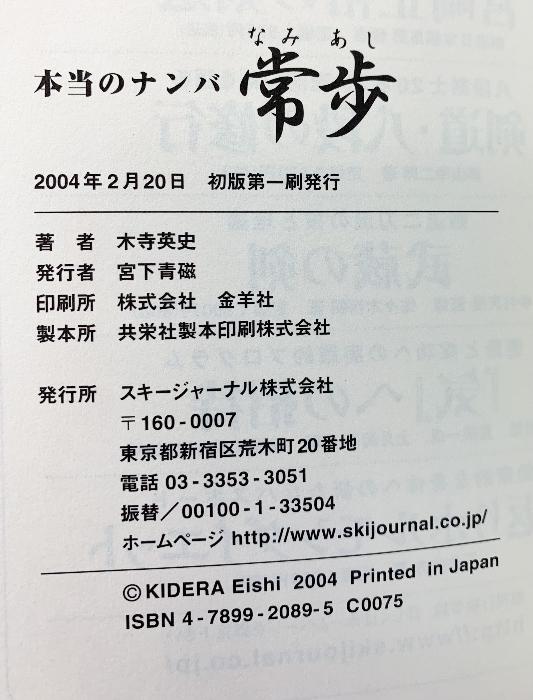 なみあし
本当のナンバ 常歩
2004年2月20日 初版第一刷発行
著 者 木寺英史
発行者 宮下青磁
印刷所 株式会社 金羊社
製本所 共栄社製本印刷株式会社
発行所 スキージャーナル株式会社
〒160-0007
東京都新宿区荒木町20番地
電話 03-3353-3051
振替/00100-1-33504
ホームページ http://www.skijournal.co.jp/
©KIDERA Eishi 2004 Printed in Japan
ISBN 4-7899-2089-5 C0075